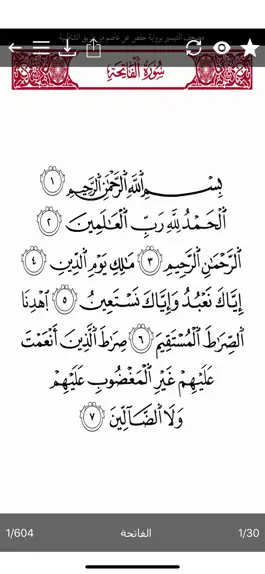 مصحف التيسير برواية حفص عن عاصم من طريق الشاطبية
سُورَةُ الْفَاتِحَةِ
بِسْمِ اللَّهِ الرَّحْمَٰنِ الرَّحِيمِ ١
الْحَمْدُ لِلَّهِ رَبِّ الْعَالَمِينَ ٢
الرَّحْمَٰنِ الرَّحِيمِ ٣ مَالِكِ يَوْمِ الدِّينِ ٤
إِيَّاكَ نَعْبُدُ وَإِيَّاكَ نَسْتَعِينُ ٥ اهْدِنَا
الصِّرَاطَ الْمُسْتَقِيمَ ٦ صِرَاطَ الَّذِينَ أَنْعَمْتَ
عَلَيْهِمْ غَيْرِ الْمَغْضُوبِ عَلَيْهِمْ
وَلَا الضَّالِّينَ ٧
1/604 الفاتحة 1/30